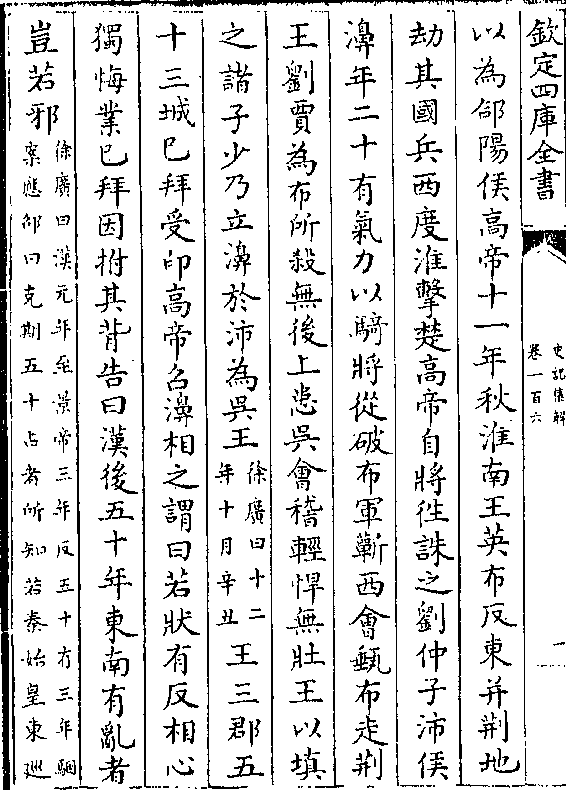 欽定四庫全書
史記集解
卷一百六
一
以為郃陽侯高帝十一年秋淮南王英布反東并荆地
劫其國兵西度淮擊楚高帝自將往誅之劉仲子沛侯
濞年二十有氣力以騎將從破布軍蘄西會甀布走荆
王劉賈為布所殺無後上患吳會稽輕悍無壯王以填
之諸子少乃立濞於沛為吳王徐廣曰十二年十月辛丑王三郡五
十三城已拜受印高帝召濞相之謂曰若狀有反相心
獨悔業已拜因拊其背告曰漢後五十年東南有亂者
豈若邪徐廣曰漢元年至景帝三年反五十有三年駰案應劭曰克期五十占者所知若秦始皇東廵